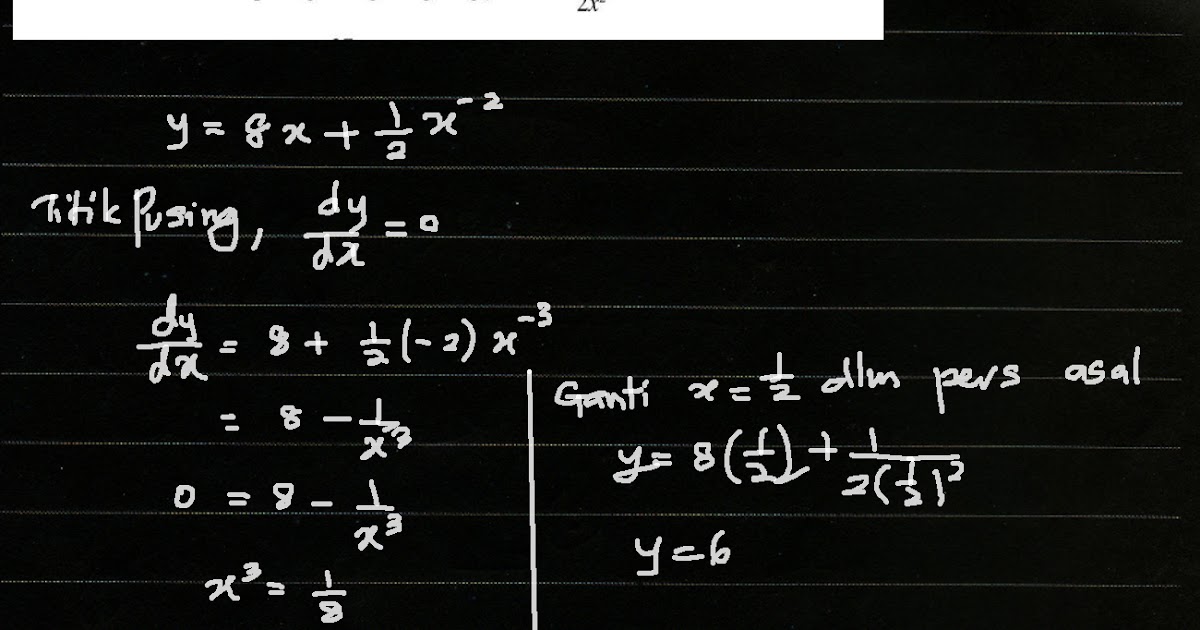 2x²
y = 8x + 1/2 x⁻²
Titik Pusing, dy/dx = 0
dy/dx = 8 + 1/2 (-2) x⁻³
= 8 - 1/x³
0 = 8 - 1/x³
x³ = 1/8
Ganti x = 1/2 dlm pers asal
y = 8(1/2) + 1/2(1/2)²
y = 6